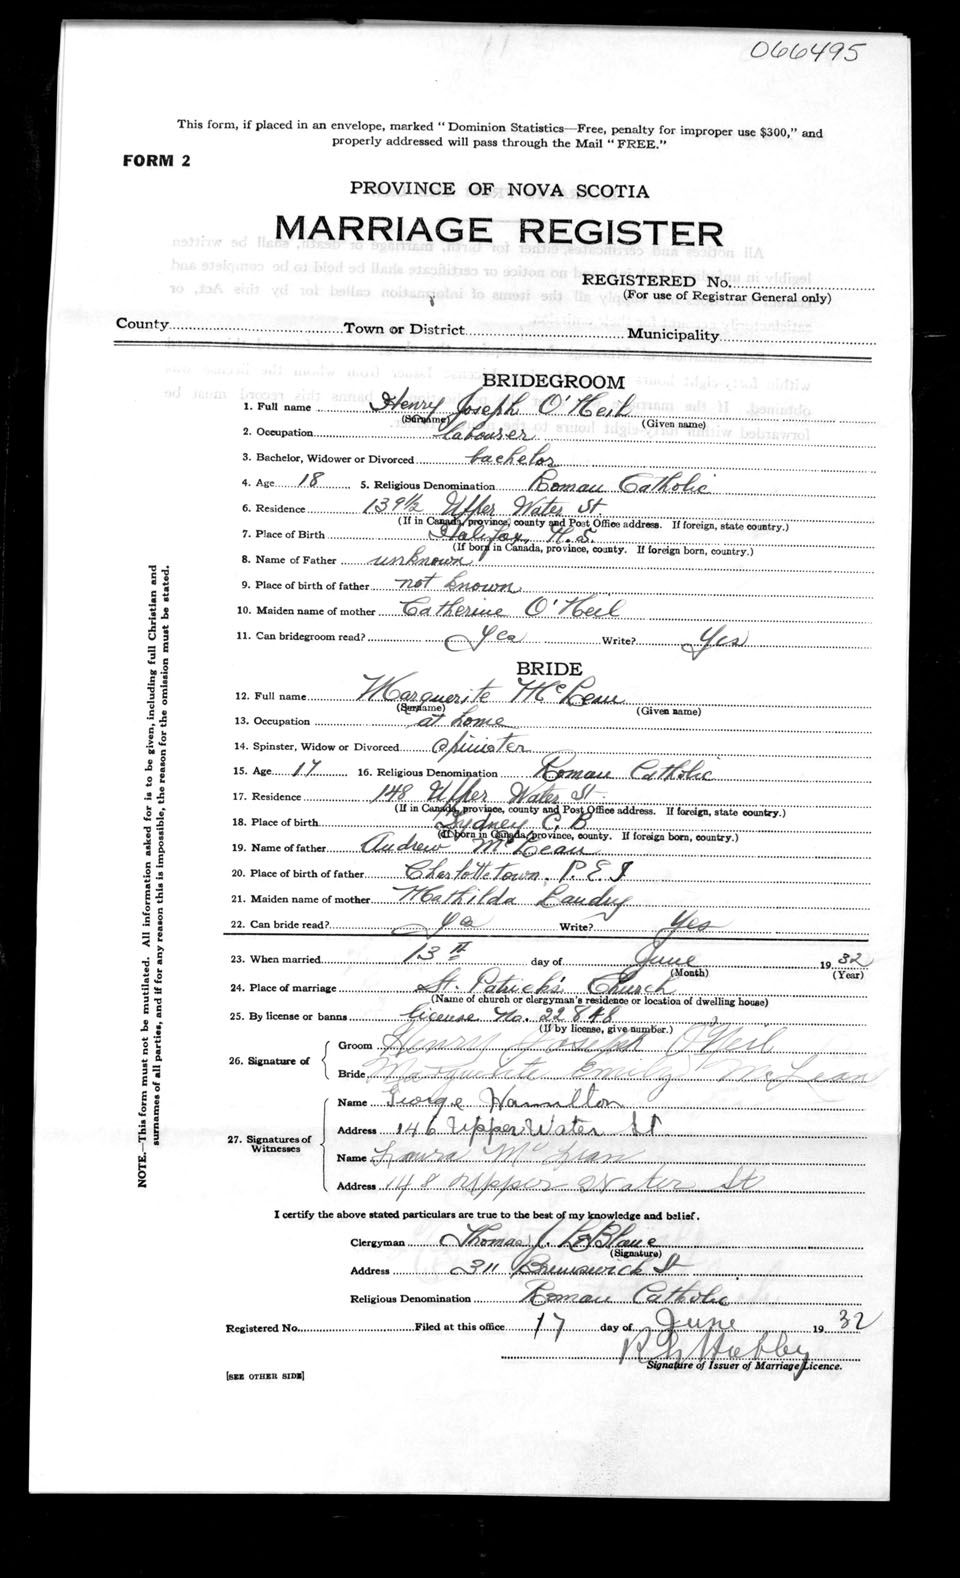 066495
This form, if placed in an envelope, marked "Dominion Statistics—Free, penalty for improper use $300," and
properly addressed will pass through the Mail "FREE."
FORM 2
PROVINCE OF NOVA SCOTIA
MARRIAGE REGISTER
REGISTERED No.
(For use of Registrar General only)
County Town or District Municipality
BRIDEGROOM
1. Full name Henry Joseph O'Neil
(Surname) (Given name)
2. Occupation labourer
3. Bachelor, Widower or Divorced bachelor
4. Age 18 5. Religious Denomination Roman Catholic
6. Residence 139½ Upper Water St.
(If in Canada, province, county and Post Office address. If foreign, state country.)
7. Place of Birth Halifax, N.S.
(If born in Canada, province, county. If foreign born, country.)
8. Name of Father unknown
9. Place of birth of father not known
10. Maiden name of mother Catherine O'Neil
11. Can bridegroom read? Yes Write? Yes
BRIDE
12. Full name Marguerite McLean
(Surname) (Given name)
13. Occupation at home
14. Spinster, Widow or Divorced spinster
15. Age 17 16. Religious Denomination Roman Catholic
17. Residence 148 Upper Water St.
(If in Canada, province, county and Post Office address. If foreign, state country.)
18. Place of birth Sydney C.B.
(If born in Canada, province, county. If foreign born, country.)
19. Name of father Andrew McLean
20. Place of birth of father Charlottetown, P.E.I
21. Maiden name of mother Mathilda Landry
22. Can bride read? Yes Write? Yes
23. When married 13th day of June 1932
(Month) (Year)
24. Place of marriage St. Patrick's Church
(Name of church or clergyman's residence or location of dwelling house)
25. By license or banns license No. 22848
(If by license, give number.)
26. Signature of
Groom Henry Joseph O'Neil
Bride Marguerite Emily McLean
27. Signatures of Witnesses
Name George Hamilton
Address 146 Upper Water St
Name Laura McLean
Address 148 Upper Water St
I certify the above stated particulars are true to the best of my knowledge and belief.
Clergyman Thomas J. LeBlanc
(Signature)
Address 311 Brunswick St
Religious Denomination Roman Catholic
Registered No. Filed at this office 17 day of June 1932
Signature of Issuer of Marriage Licence.
[SEE OTHER SIDE]
NOTE.—This form must not be mutilated. All information asked for is to be given, including full Christian and
surnames of all parties, and if for any reason this is impossible, the reason for the omission must be stated.